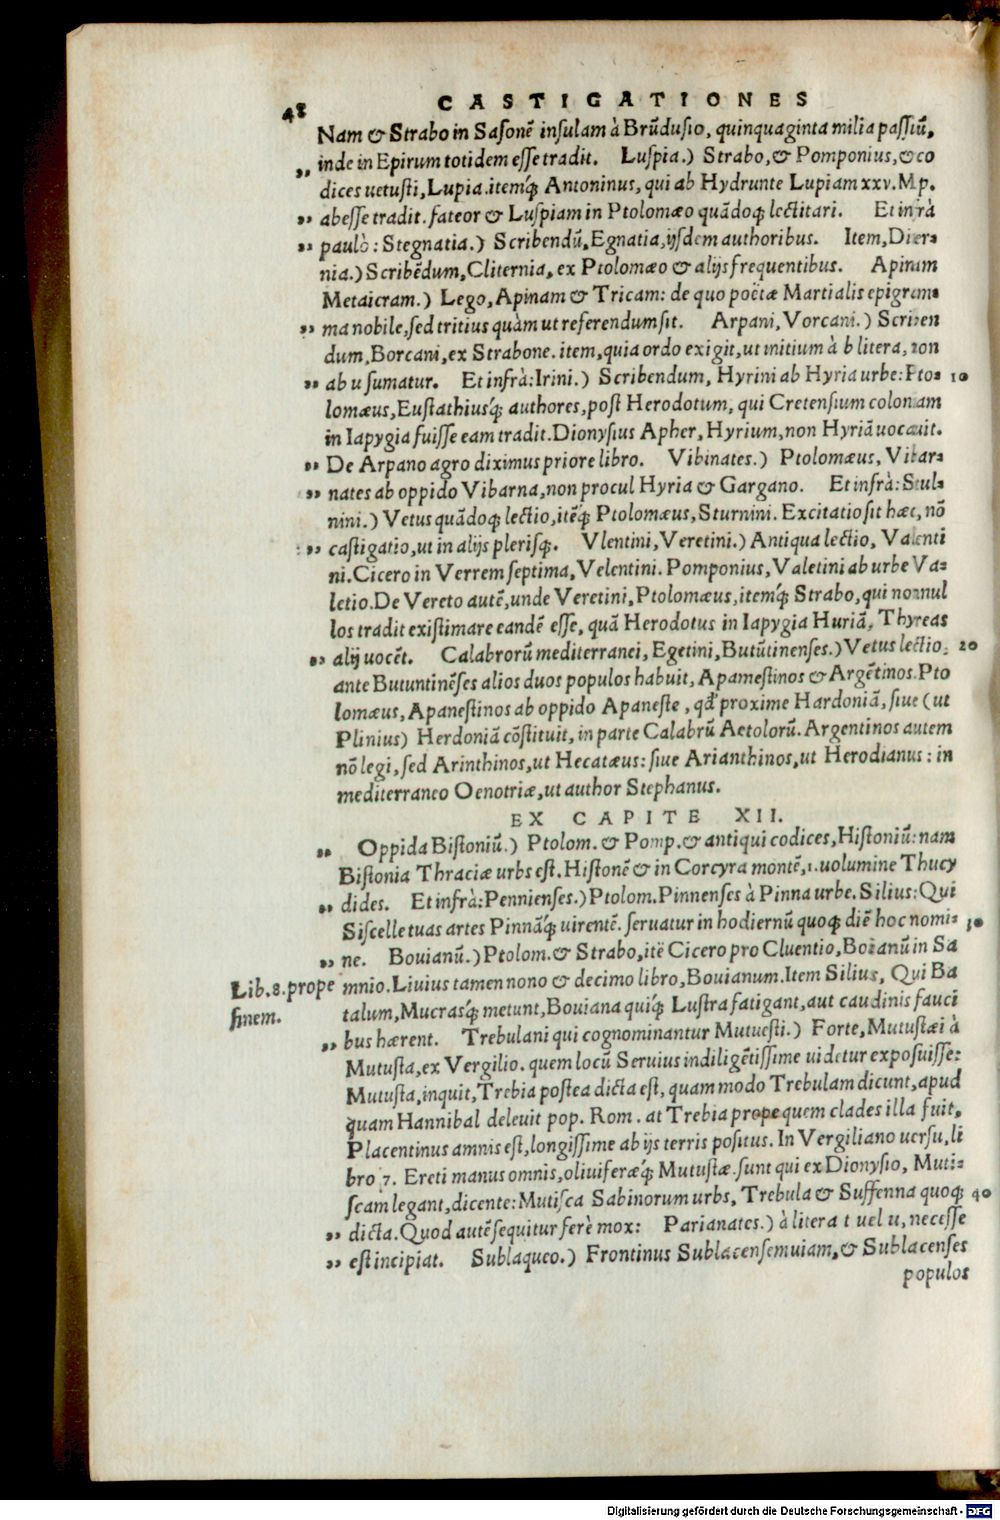 48 CASTIGATIONES
Nam & Strabo in Sasonē insulam à Brūdusio, quinquaginta milia passiū,
„ inde in Epirum totidem esse tradit. Luspia.) Strabo, & Pomponius, & co
dices uetusti, Lupia. itemq́; Antoninus, qui ab Hydrunte Lupiam xxv. M p.
„ abesse tradit. fateor & Luspiam in Ptolomæo quādoq; lectitari. Et infrà
„ paulò: Stegnatia.) Scribendū, Egnatia, ijsdem authoribus. Item, Dier-
nia.) Scribēdum, Cliternia, ex Ptolomæo & alijs frequentibus. Apinam
Metaicram.) Lego, Apinam & Tricam: de quo poëtæ Martialis epigram-
„ ma nobile, sed tritius quàm ut referendum sit. Arpani, Vorcani.) Scriben
dum, Borcani, ex Strabone. item, quia ordo exigit, ut initium à b litera, non
„ ab u sumatur. Et infrà: Irini.) Scribendum, Hyrini ab Hyria urbe: Pto- 10
lomæus, Eustathiusq́; authores, post Herodotum, qui Cretensium coloniam
in Iapygia fuisse eam tradit. Dionysius Apher, Hyrium, non Hyriā uocauit.
„ De Arpano agro diximus priore libro. Vibinates.) Ptolomæus, Vibar-
„ nates ab oppido Vibarna, non procul Hyria & Gargano. Et infrà: Stul-
nini.) Vetus quādoq; lectio, itēq́; Ptolomæus, Sturnini. Excitatio sit hæc, nō
„ castigatio, ut in alijs plerisq;. Vlentini, Veretini.) Antiqua lectio, Valenti
ni. Cicero in Verrem septima, Velentini. Pomponius, Valetini ab urbe Va-
letio. De Vereto autē, unde Veretini, Ptolomæus, itemq́; Strabo, qui nonnul
los tradit existimare eandē esse, quā Herodotus in Iapygia Huriā, Thyreas
„ alij uocēt. Calabrorū mediterranei, Egetini, Butūtinenses.) Vetus lectio, 20
ante Butuntinēses alios duos populos habuit, Apamestinos & Argētinos. Pto
lomæus, Apanestinos ab oppido Apaneste, qđ proxime Hardoniā, siue (ut
Plinius) Herdoniā cōstituit, in parte Calabrū Aetolorū. Argentinos autem
nō legi, sed Arinthinos, ut Hecatæus: siue Arianthinos, ut Herodianus: in
mediterraneo Oenotriæ, ut author Stephanus.
EX CAPITE XII.
„ Oppida Bistoniū.) Ptolom. & Pomp. & antiqui codices, Histoniū: nam
Bistonia Thraciæ urbs est. Histonē & in Corcyra montē, 1. uolumine Thucy
„ dides. Et infrà: Pennienses.) Ptolom. Pinnenses à Pinna urbe. Silius: Qui
Siscelle tuas artes Pinnāq́; uirentē. seruatur in hodiernū quoq; diē hoc nomi- 30
„ ne. Bouianū.) Ptolom. & Strabo, itē Cicero pro Cluentio, Boianū in Sa
Lib. 8. prope finem.
mnio. Liuius tamen nono & decimo libro, Bouianum. Item Silius, Qui Ba
talum, Mucrasq́; metunt, Bouiana quiq́; Lustra fatigant, aut caudinis fauci
„ bus hærent. Trebulani qui cognominantur Mutuesti.) Forte, Mutustæi à
Mutusta, ex Vergilio. quem locū Seruius indiligētissime uidetur exposuisse:
Mutusta, inquit, Trebia postea dicta est, quam modo Trebulam dicunt, apud
quam Hannibal deleuit pop. Rom. at Trebia prope quem clades illa fuit,
Placentinus amnis est, longissime ab ijs terris positus. In Vergiliano uersu, li
bro 7. Ereti manus omnis, oliuiferæq́; Mutustæ. sunt qui ex Dionysio, Muti-
scam legant, dicente: Mutisca Sabinorum urbs, Trebula & Suffenna quoq; 40
„ dicta. Quod autē sequitur ferè mox: Parianates.) à litera t uel u, necesse
„ est incipiat. Sublaqueo.) Frontinus Sublacensem uiam, & Sublacenses
populos
Digitalisierung gefördert durch die Deutsche Forschungsgemeinschaft - DFG